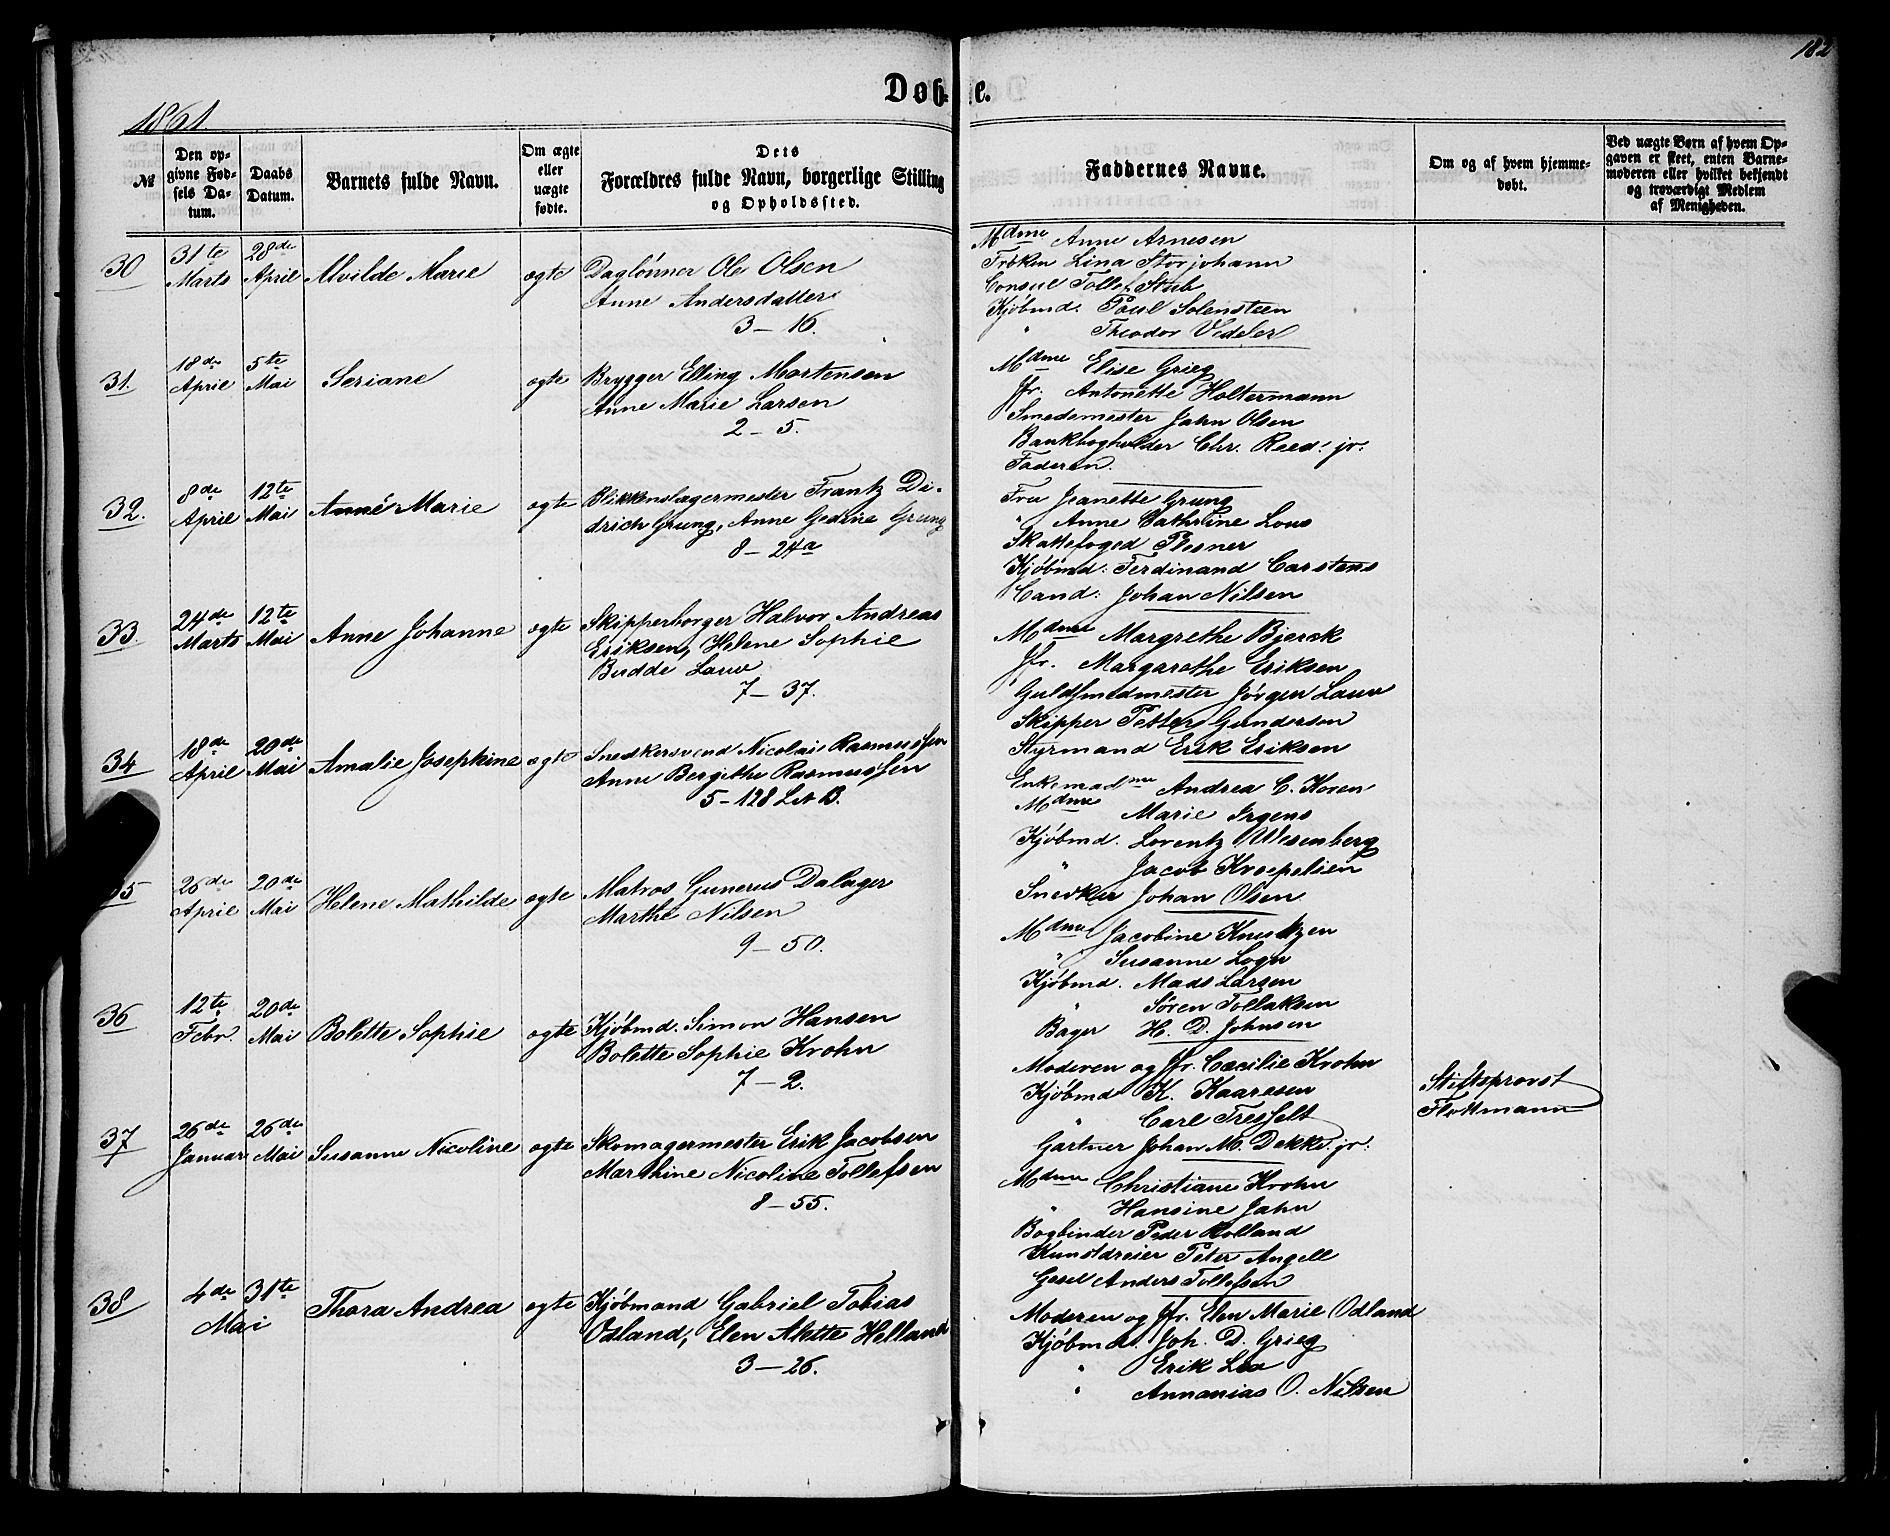 182
Døbte.
1861.
№
Den opgivne Fødsels Datum.
Daabs Datum.
Barnets fulde Navn.
Om ægte eller uægte fødte.
Dets Forældres fulde Navn, borgerlige Stilling og Opholdssted.
Faddernes Navne.
Om og af hvem hjemmedøbt.
Ved uægte Børn af hvem Opgaven er skeet, enten Barnemoderen eller hvilket bekjendt og troværdigt Medlem af Menigheden.
30 31te Marts 28de April Alvilde Marie ægte Daglønner Ole Olsen
Anne Andersdatter
3 – 16.
Mdme Anne Arnesen
Frøken Lina Storjohann
Consul Tollef Stub
Kjøbmd. Poul Solensteen
" Theodor Vedeler
31. 18de April 5te Mai Seriane ægte Brygger Elling Mortensen
Anne Marie Larsen
2 – 5.
Mdme Elise Grieg
Jfr. Antonette Holtermann
Smedemester Jahn Olsen
Bankbogholder Chr. Reed: jr:
Faderen.
32. 8de April 12te Mai Anné Marie ægte Blikkenslagermester Frantz Di-
drich Grung, Anne Gedine Grung
8 – 24a
Fru Jeanette Grung
" Anne Cathrine Lous
Skattefoged Plesner
Kjøbmd: Ferdinand Carstens
Cand: Johan Nilsen
33. 24de Marts 12te Mai Anne Johanne ægte Skipperborger Halvor Andreas
Eriksen, Helene Sophie
Budde Lauw
7 – 37.
Mdme Margrethe Bjerck
Jfr. Margarethe Eriksen
Guldsmedmester Jørgen Lauw
Skipper Petter Gundersen
Styrmand Erik Eriksen
34 18de April 20de Mai Amalie Josephine ægte Snedkersvend Nicolai Rasmussen
Anne Bergithe Rasmussen
5 – 128 Lit B.
Enkemadme Andrea C. Koren
Mdme Marie Irgens
Kjøbmd. Lorentz Wesenberg
" Jacob Kroepelien
Snedker Johan Olsen
35 26de April 20de Mai Helene Mathilde ægte Matros Gunerus Dalager
Marthe Nilsen
9 – 50.
Mdme Jacobine Knutzen
" Susanne Logn
Kjøbmd. Mads Larsen
" Søren Tollaksen
Bager H. D. Johnsen
36 12te Febr. 20de Mai Bolette Sophie ægte Kjøbmd. Simon Hansen
Bolette Sophie Krohn
7 – 2.
Moderen og Jfr. Cæcilie Krohn
Kjøbmd K. Kaaresen
" Carl Tresselt
Gartner Johan M. Dekke jr:
Stiftsprovst
Flottmann
37 26de Januar 26de Mai Susanne Nicoline ægte Skomagermester Erik Jacobsen
Marthine Nicoline Tollefsen
8 – 55.
Mdme Christiane Krohn
" Hansine Jahn
Bogbinder Peder Rolland
Kunstdreier Peter Angell
Gesel Anders Tollefsen
38 4de 31te Mai Thora Andrea ægte Kjøbmand Gabriel Tobias
Odland, Elen Akitte Helland
3 – 26.
Moderen og Jfr. Elen Marie Odland
Kjøbmd. Joh. D. Grieg
" Erik Lea
" Annanias O. Nilsen